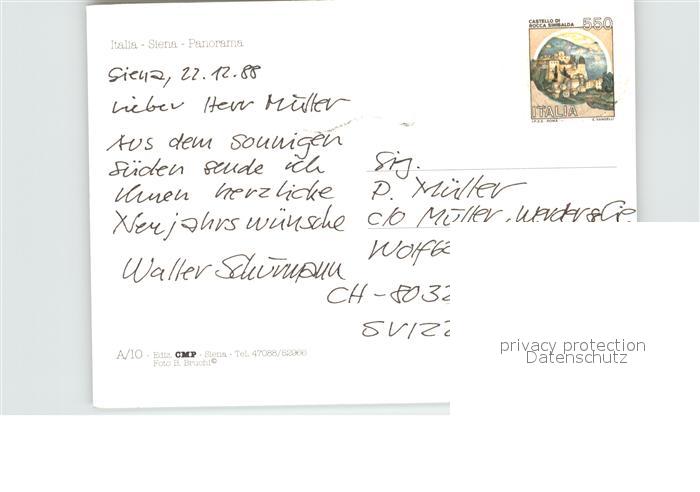 Italia - Siena - Panorama
Siena, 22.12.88
Lieber Herr Müller
Aus dem sonnigen
Süden sende ich
Ihnen herzliche
Neujahrswünsche
Walter Schürmann
CASTELLO DI
ROCCA SINIBALDA
550
ITALIA
I.P.Z.S. ROMA
E. VANGELLI
Sig.
P. Müller
c/o Müller, Werder & Cie
CH-8032
SVIZZ
A/10 - Ediz. CMP - Siena - Tel. 47088/52966
Foto B. Bruchi©
privacy protection
Datenschutz